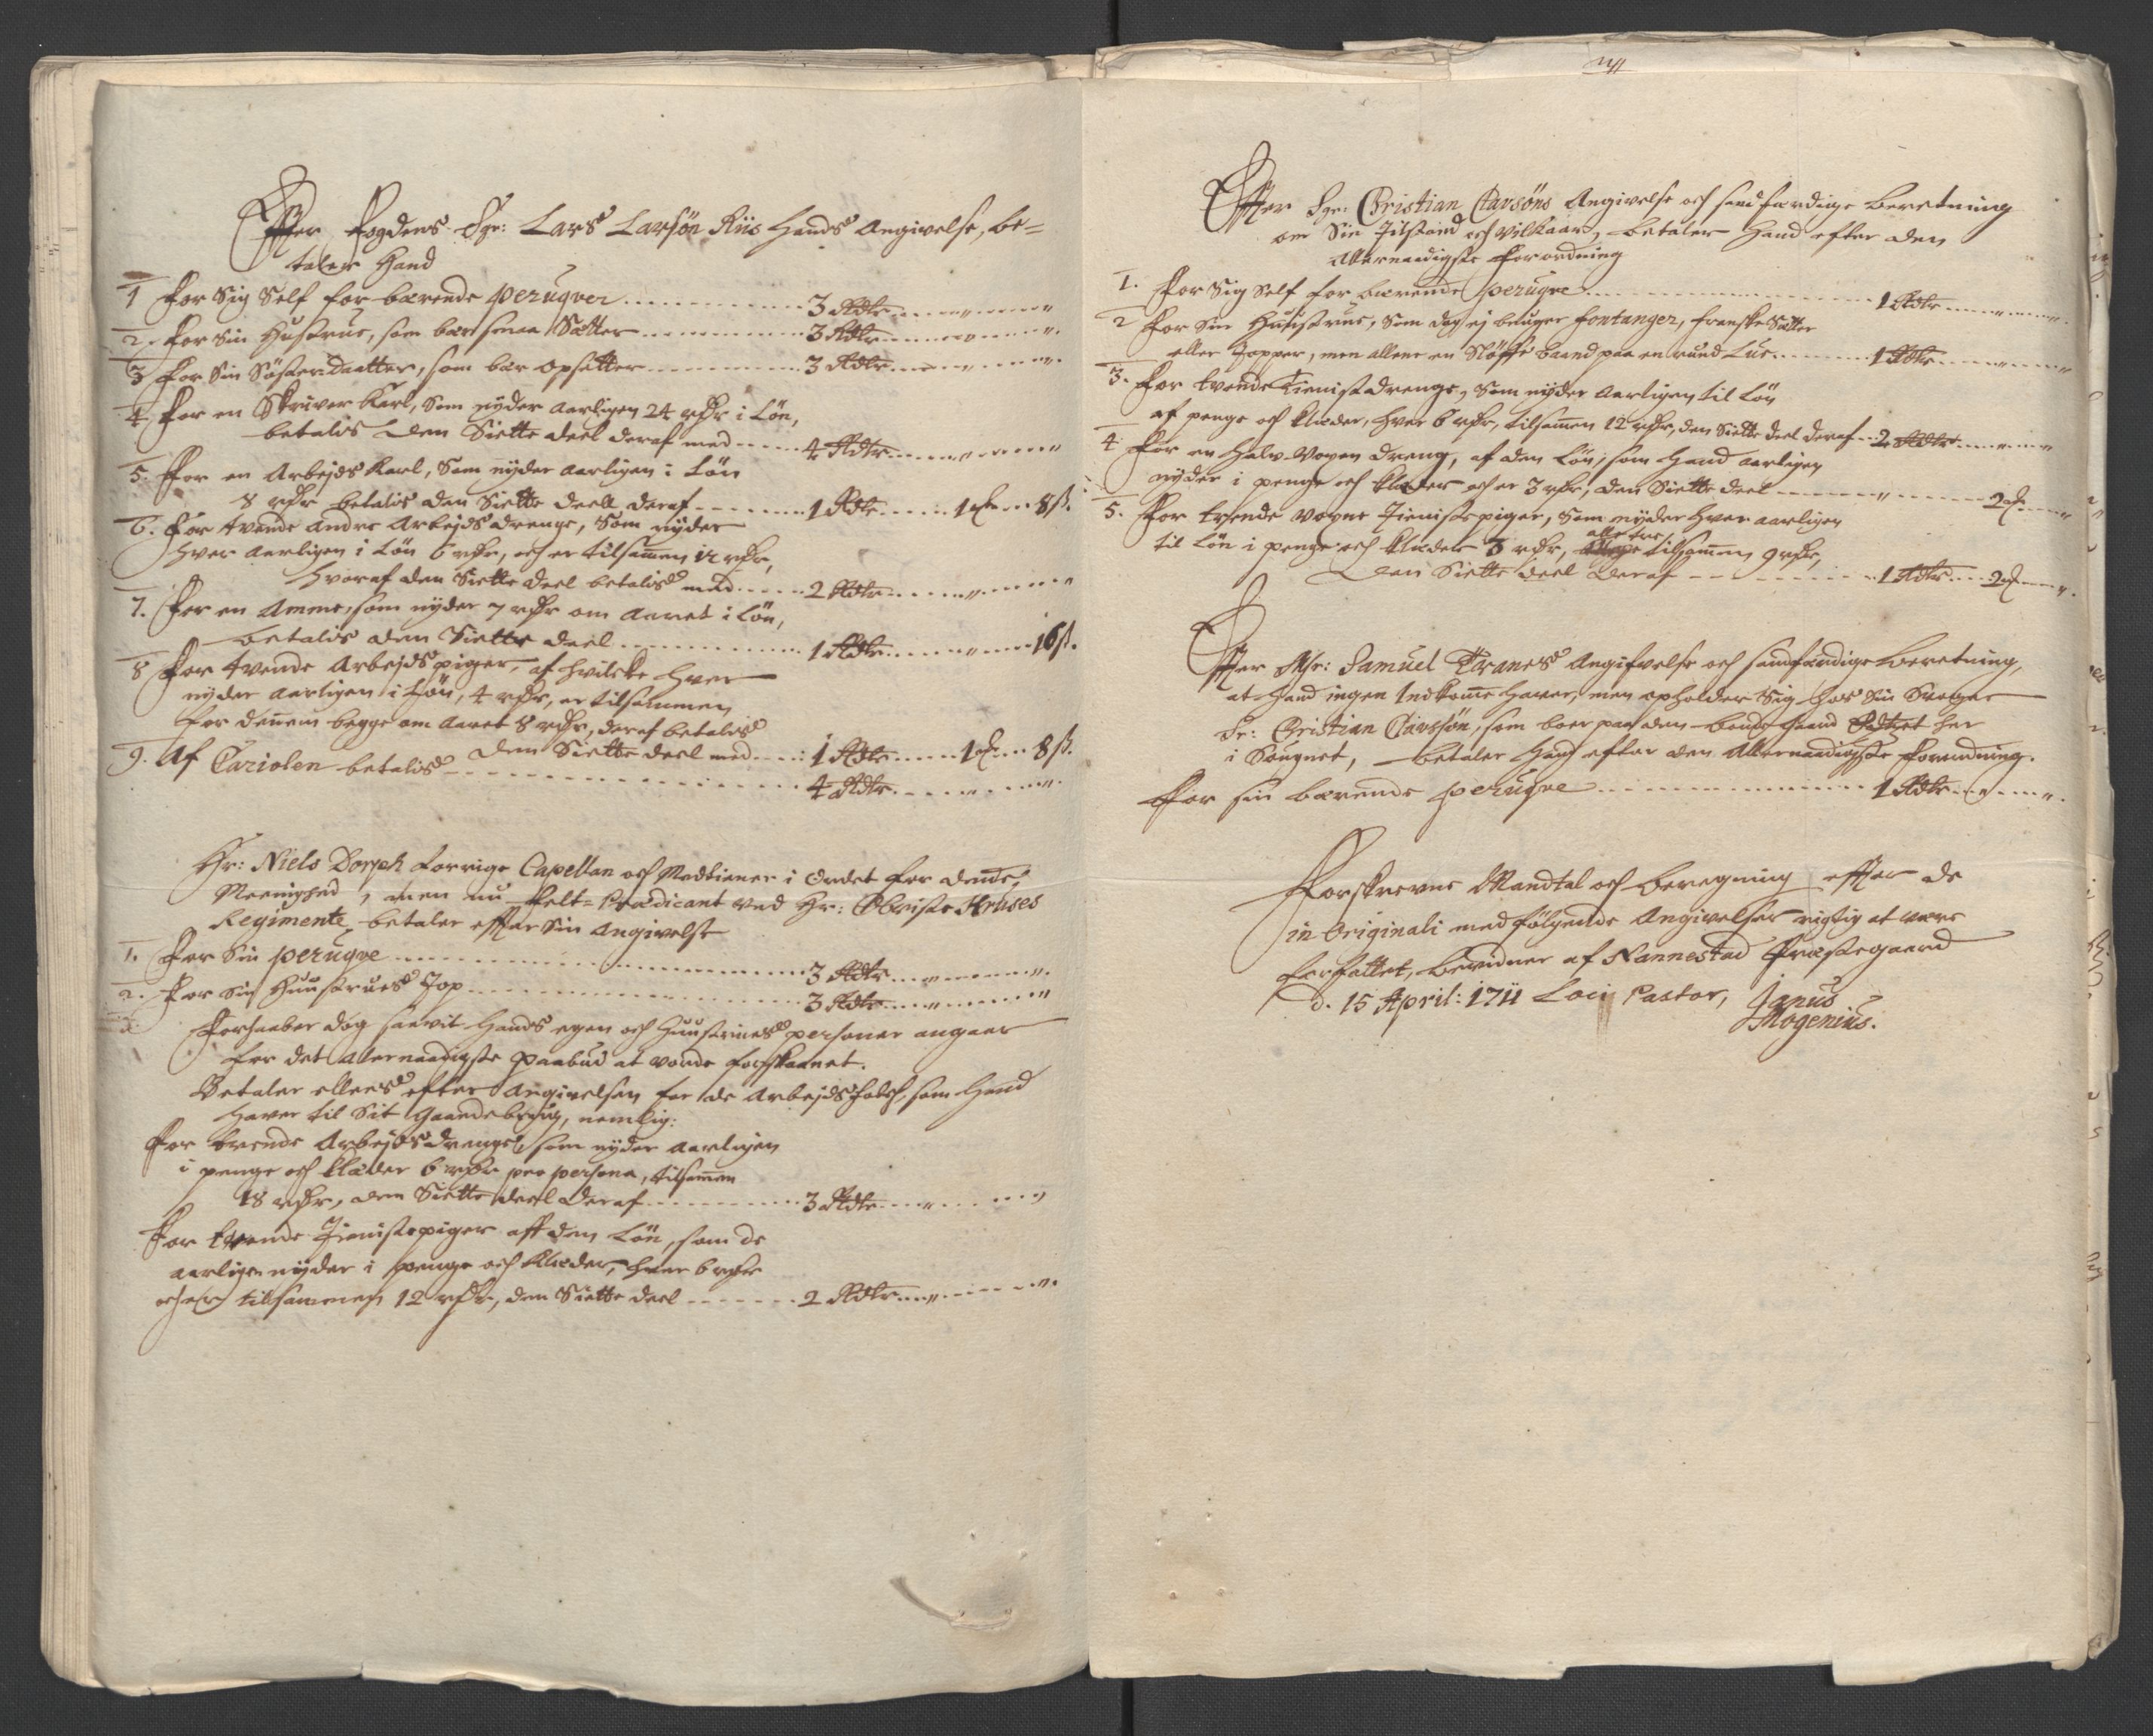 Effter Fogdens Sgr: Lars Larsøn Riis hands Angivelse, be=
taler hand
1 For Sig Self for bærende perugver ... 3 Rdlr ... "
2. For Sin Hustrue, som bær smaa Sætter ... 3 Rdlr ... "
3 For Sin Søsterdaatter, som bær opsetter ... 3 Rdlr ... "
4. For en Skriver Karl, Som nyder aarligen 24 rdr i Løn,
betalis den Siette deel deraf med ... 4 Rdlr ... "
5. For en Arbejds Karl, Som nyder aarligen i Løn
8 rdr betalis den Siette deel deraf ... 1 Rdlr ... 1 ort ... 8 ß.
6. For tvende andre Arbejdsdrenge, Som nyder
hver aarligen i Løn 6 rdr, och er tilsam̄en 12 rdr,
hvoraf den Siette deel betalis med ... 2 Rdlr ... "
7. For en Amme, som nyder 7 rdr om Aaret i Løn,
betalis den Siette deel ... 1 Rdlr ... " ... 16 ß.
8 For tvende Arbejdspiger, af hvilke hver
nyder aarligen i Løn, 4 rdr, er tilsammen
for dennem begge om Aaret 8 rdr, deraf betalis
den Siette deel med ... 1 Rdlr ... 1 ort ... 8 ß.
9. Af Cariolen betalis ... 4 Rdlr ... "
Hr: Niels Dorph forrige Capellan och Medtiener i Ordet for denne
Meenighed, men nu Felt=Prædicant ved Hr: Obriste Kruses
Regimente, betaler effter Sin Angivelse
1. For Sin perugve ... 3 Rdlr ... "
2. For Sin Huustrues Top ... 3 Rdlr ... "
Forhaaber dog saavit hands egen och Huustrues personer angaar
for det allernaadigste Paabud at vorde forskaanet.
Betaler ellers efter Angivelsen for de Arbejdsfolch, som hand
haver til Sit Gaardebrug, nemlig:
For trende Arbejdsdrenge, som nyder aarligen
i penge och klæder 6 rdr pro persona, tilsam̄en
18 rdr, den Siette deel deraf ... 3 Rdlr ... "
For tvende Tienistepiger aff den Løn, som de
aarligen nyder i penge och klæder, hver 6 rdr
och er tilsammen 12 rdr, den Siette deel ... 2 Rdlr ... "
Effter Sgr: Christian Clavsøns Angivelse och sandfærdige beretning
om Sin Tilstand och Vilkaar, betaler hand efter den
Allernaadigste forordning
1. For Sig Self for bærende perugve ... 1 Rdlr ... "
2 For Sin Hustrue, Som dog ej bruger fontanger, franske Sætter
eller Topper, men allene en Sløffe baand paa en rund Lue ... 1 Rdlr ... "
3. For tvende Tienistedrenge, Som nyder Aarligen til Løn
af penge och klæder, hver 6 rdr, tilsam̄en 12 rdr, den Siette deel deraf ... 2 Rdlr ... "
4 For en halv-voxen dreng, af den Løn, som hand aarligen
nyder i penge och klæder och er 3 rdr, den Siette deel ... " ... 2 ort ... "
5. For trende voxne Tienistepiger, Som nyder hver aarligen
alle tre
til Løn i penge och klæder 3 rdr, tilsam̄en 9 rdr,
den Siette deel deraf ... 1 Rdlr ... 2 ort ... "
Effter Mr: Samuel Kranes Angifvelse och sandfærdige beretning,
at hand ingen Indkom̄e haver, men opholder Sig hos Sin Svoger
Sr: Christian Clavssøn, som boer paa den bonde Gaard her
i Sougnet, betaler hand efter den Allernaadigste forordning.
For sin bærende perugve ... 1 Rdlr ... "
Forskrevne Mandtal och beregning effter de
in Originali medfølgende Angivelser rigtig at være
forfattet, bevidner af Nannestad Præstegaard
d. 15 April: 1711 Loci Pastor, Janus
Mogenius.